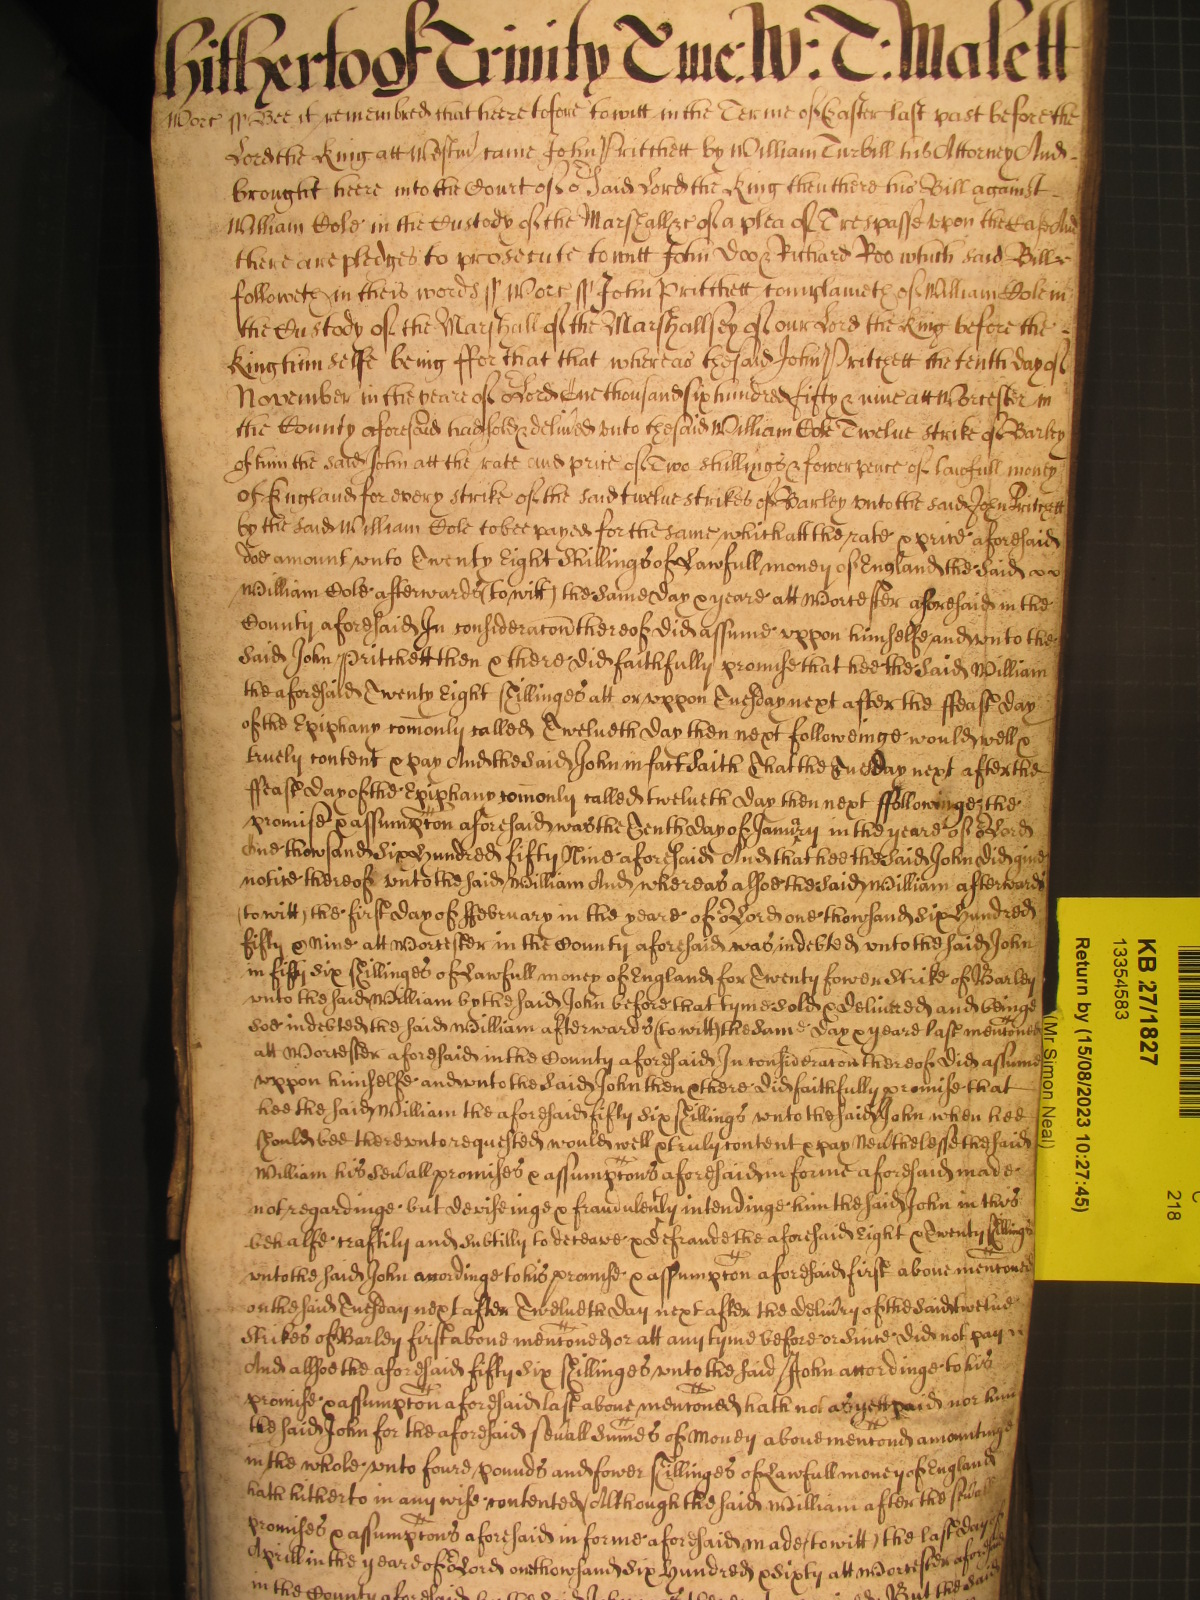 hitherto of Trinity Tme: W: T: Malett
Worc ss Bee it remembred that heere tofore to witt in the Terme of Easter last past before the
Lord the King att Westm came John Pritchett by William Turbill his Attorney And
brought heere into the Court of o Said Lord the King then there his Bill against
William Cole in the Custody of the Marshall &c of a plea of Trespasse vpon the Case And
there are pledges to prosecute to witt John Doo & Richard Roo which said Bill
followeth in theis words ss Worc ss John Pritchett complaineth of William Cole in
the Custody of the Marshall of the Marshallsey of our Lord the King before the
King him selfe being ffor that that whereas the said John Pritchett the tenth day of
November in the yeare of o Lord One thousand six hundred fifty & nine att Worcester in
the County aforesaid had sold & delived vnto the said William Cole Twelue strike of Barley
of him the said John att the rate and price of Two shillings & fower pence of lawfull money
of England for every strike of the said twelue strikes of Barley vnto the said John Pritchett
by the said William Cole to bee payed for the same which att the rate & price aforesaid
doe amount vnto Twenty Eight Shillings of Lawfull money of England the Said
William Cole afterwards (to witt) the same day & yeare att Worcester aforesaid in the
County aforesaid In consideracon thereof did assume vppon himselfe and vnto the
Said John Pritchett then & there did faithfully promise that hee the Said William
the aforesaid Twenty Eight shillinges att or vppon Tuesday next after the ffeast day
of the Epiphany comonly called Twelueth day then next followeinge would well &
truely content & pay And the Said John in fact Saith That the Tuesday next after the
ffeast day of the Epiphany comonly called twelueth day then next ffollowinge the
promise & assumpton aforesaid was the Tenth day of January in the yeare of o Lord
One thowsand Six Hundred fifty Nine aforesaid And that hee the Said John did give
notice thereof vnto the said William And whereas alsoe the Said William afterwards
(to witt) the first day of ffebruary in the yeare of o Lord one thowsand Six Hundred
fifty & Nine att Worcester in the County aforesaid was indebted vnto the Said John
in fifty Six shillinges of Lawfull money of England for Twenty fower Strike of Barley
vnto the said William by the Said John before that tyme Sold & delivered and beinge
Soe indebted the Said William afterwards (to witt) the Same day & yeare last mentoned
att Worcester aforesaid in the County aforesaid In consideracon thereof did assume
vppon himselfe and vnto the Said John then & there did faithfully promise that
hee the Said William the aforesaid fifty Six shillings vnto the Said John when hee
should bee therevnto requested would well & truly content & pay Neuthelesse the Said
William his Seuall promises & assumptons aforesaid in forme aforesaid made
not regardinge but deviseinge & fraudulently intendinge him the said John in this
behalfe craftily and Subtilly to deceave & defraude the aforesaid Eight & Twenty shillings
vnto the Said John accordinge to his promise & assumpton aforesaid first aboue mentoned
on the Said Tuesday next after Twelueth day next after the delivry of the Said twelue
Strikes of Barley first aboue mentoned or att any tyme before or Since did not pay
And allsoe the aforesaid fifty Six shillinges vnto the said John accordinge to his
promise & assumpton aforesaid last aboue mentoned hath not as yett paid nor him
the Said John for the aforesaid Seuall Sumes of Money aboue mentond amountinge
in the whole vnto foure pounds and fower shillinges of Lawfull money of England
hath hitherto in any wise contented Although the Said William after the Seuall
promises & assumptons aforesaid in forme aforesaid made (to witt) the last day of
Aprill in the yeare of o Lord one thowsand Six Hundred & Sixty att Worcester aforesaid
in the County aforesaid by the Said John But the Said
KB 27/1827
13354583
Return by (15/08/2023 10:27:45)
(Mr Simon Neal)
218